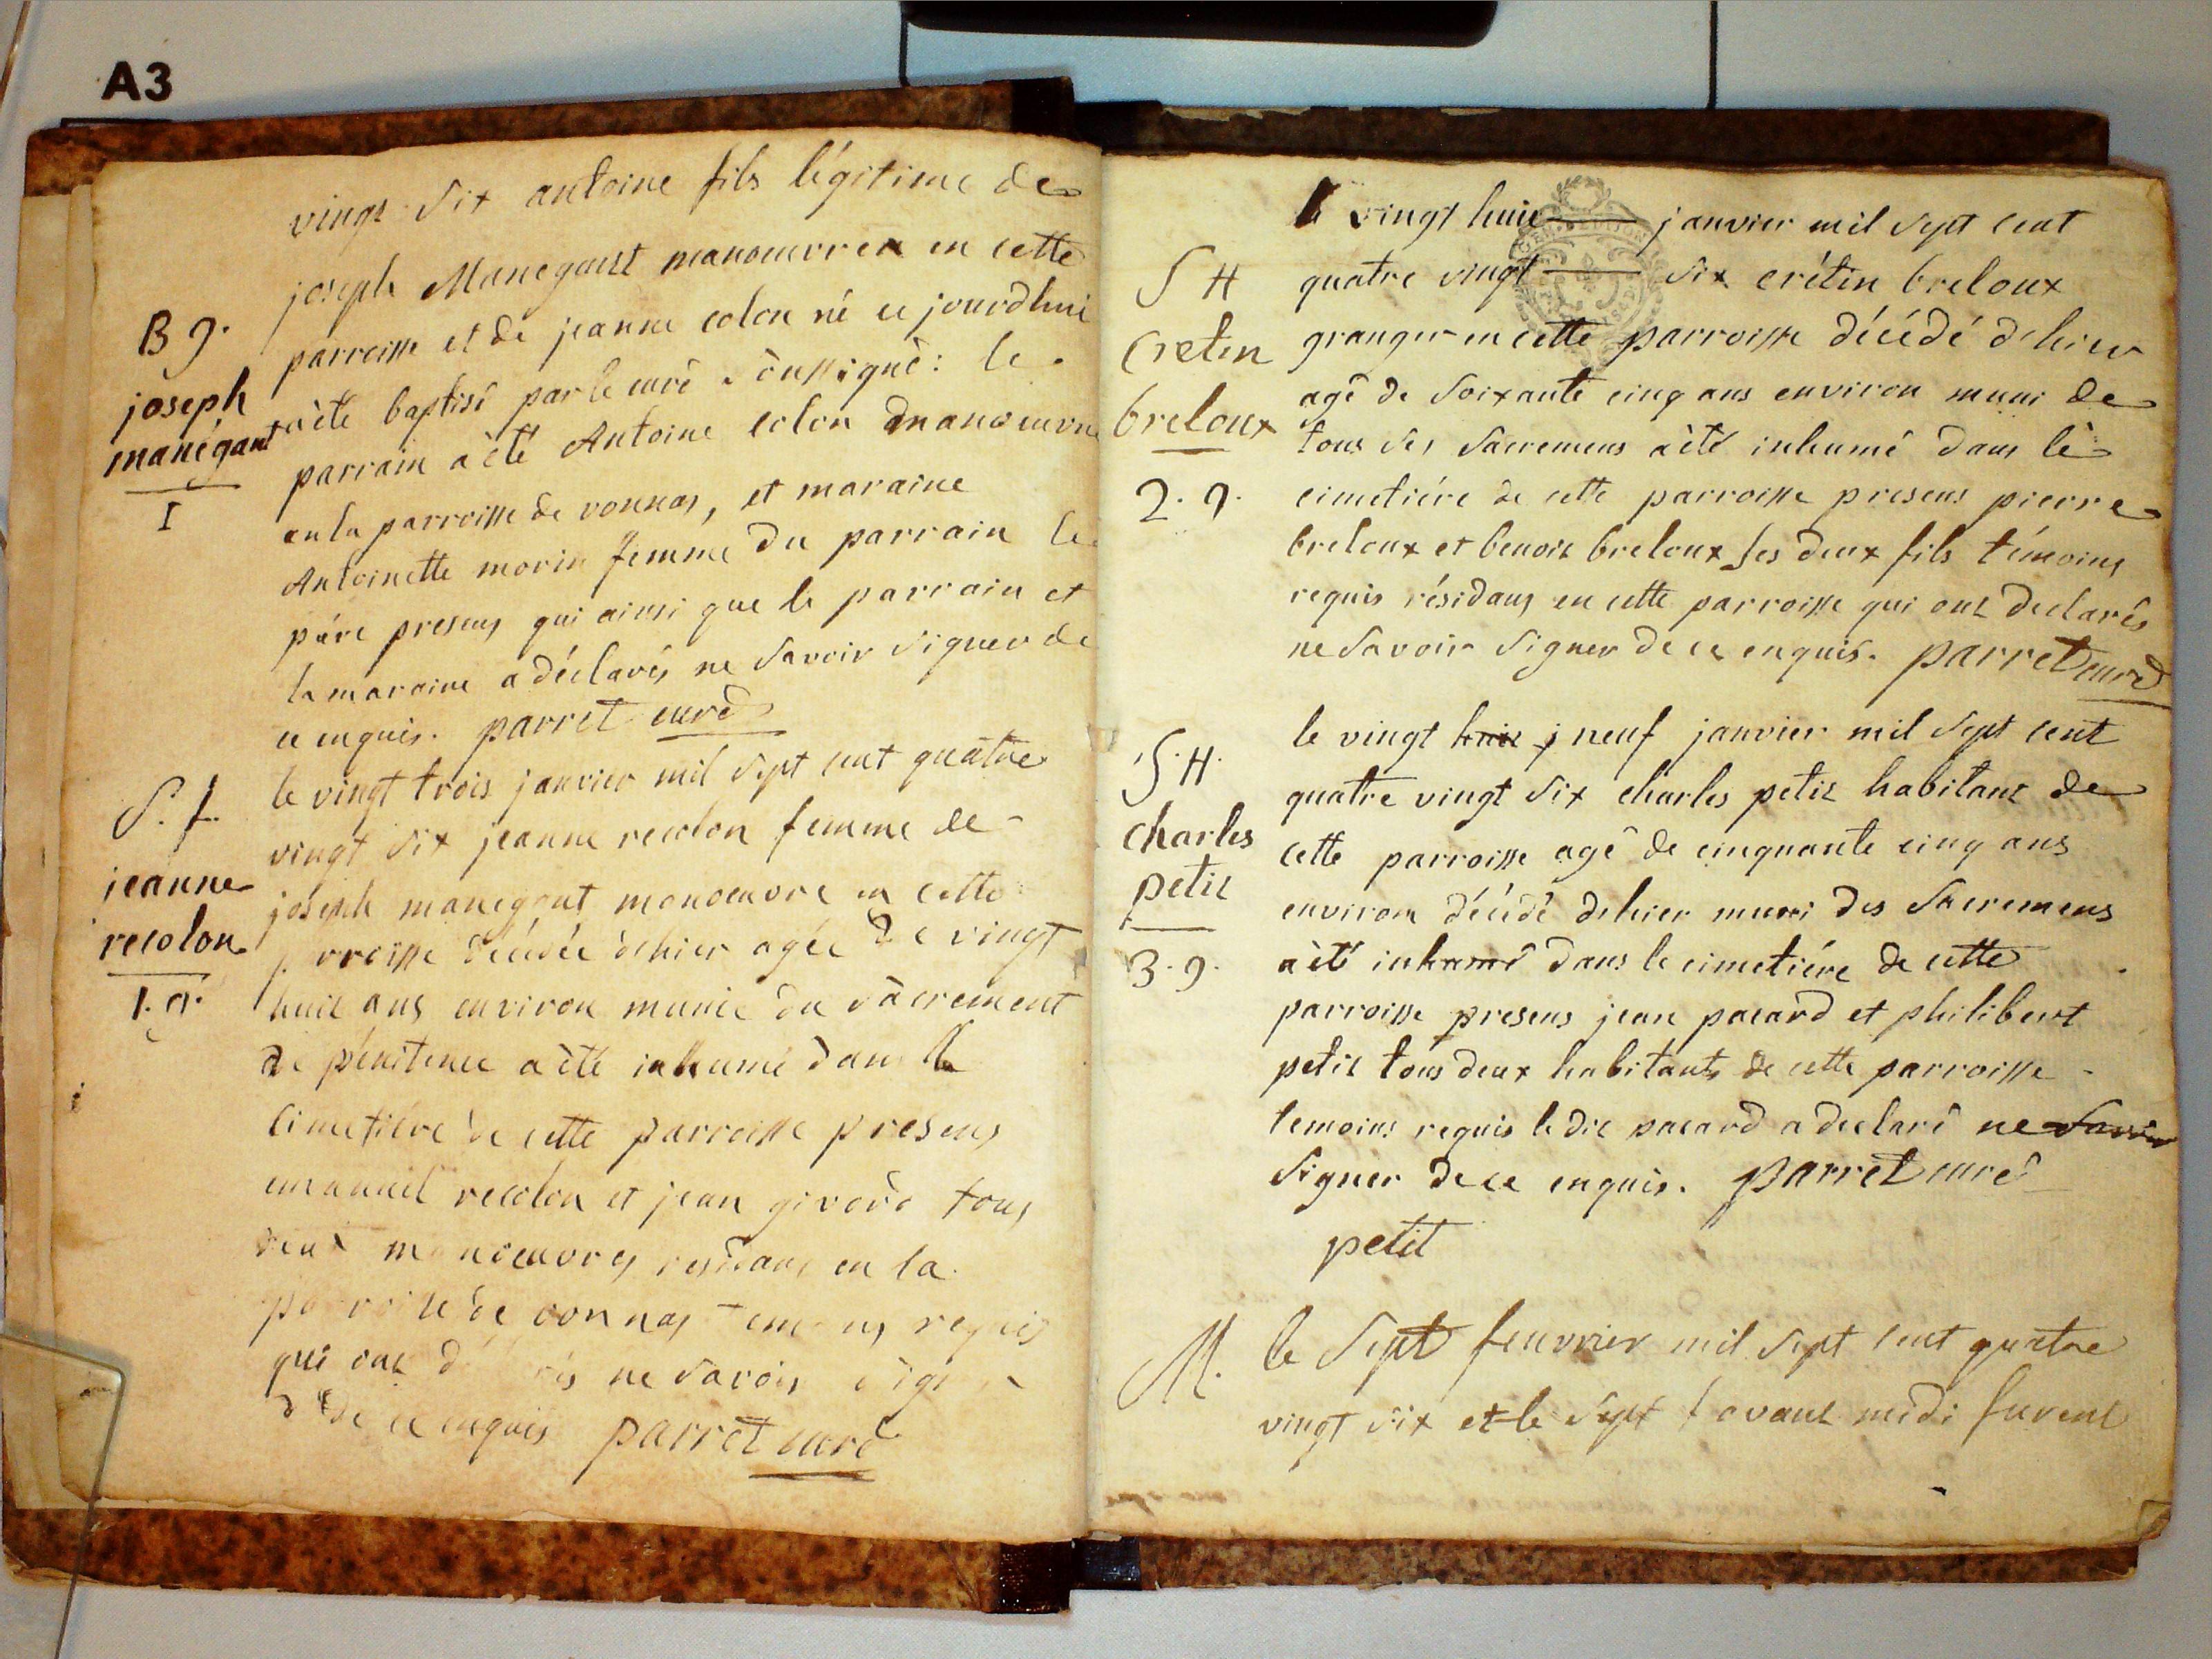 A3
vingt six antoine fils légitime de
joseph Manegant manouvrier en cette
parroisse et de jeanne colon né ce jourdhui
B g.
joseph
manégant
I
a été baptisé par le curé soussigné: le
parrain a été Antoine colon manoeuvre
en la parroisse de vonnas, et maraine
Antoinette morin femme du parrain le
pére presens qui ainsi que le parrain et
la maraine a déclarés ne savoir signer de
ce enquis. parret curé
S. f.
jeanne
recolon
1. g.
le vingt trois janvier mil sept cent quatre
vingt six jeanne recolon femme de
joseph manegant manoeuvre en cette
p rroisse décédée dehier agée de vingt
huit ans environ munie du sàcrement
de pénitence a été inhumé dans le
cimetiére de cette parroisse presens
emanuel recolon et jean girord tous
deux manoeuvres residans en la
parroisse de vonnas temoins requis
qui ont d rés ne savoir signer
de ce enquis parret curé
S H
Cretin
breloux
2. g.
le vingt huit janvier mil sept cent
quatre vingt six crétin breloux
granger en cette parroisse décédé dehier
agé de soixante cinq ans environ muni de
tous ses sacremens a été inhumé dans le
cimetiére de cette parroisse presens pierre
breloux et benoit breloux ses deux fils témoins
requis résidans en cette parroisse qui ont declarés
ne savoir signer de ce enquis. parret curé
S. H.
charles
petit
3. g.
le vingt huit j neuf janvier mil sept cent
quatre vingt six charles petit habitant de
cette parroisse agé de cinquante cinq ans
environ décédé dehier muni des sacremens
a été inhumé dans le cimetiére de cette
parroisse presens jean pacard et philibert
petit tous deux habitants de cette parroisse
temoins requis le dit pacard a declaré ne savoir
signer de ce enquis. parret curé
petit
M.
le sept feuvrier mil sept cent quatre
vingt six et le sept avant midi furent